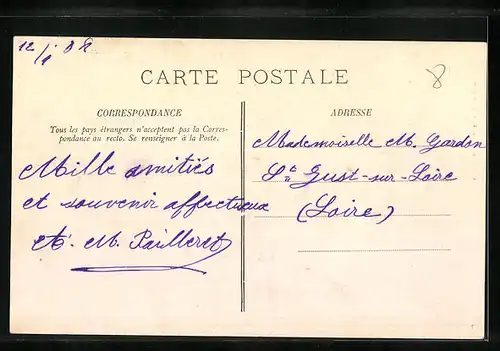 12/1 08
8
CARTE POSTALE
CORRESPONDANCE
Tous les pays étrangers n'acceptent pas la Corres-
pondance au recto. Se renseigner à la Poste.
ADRESSE
Mille amitiés
et souvenir affectueux
M. Pailleret
Mademoiselle M. Gardon
St Just-sur-Loire
(Loire)